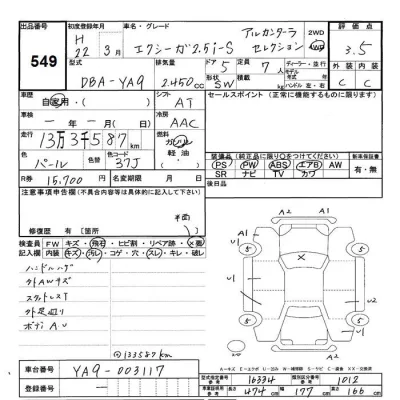 出品番号
549
初度登録年月
H 22 3月
車名・グレード
エクシーガ2.5i-S
アルカンターラ
セレクション
2WD
4WD
評価点
3.5
型式
DBA-YA9
排気量
2,450cc
ドア
5
形状
SW
定員
7人
ディーラー・並行
モデル年式
ハンドル 左・右
外装 内装
C C
車歴
自家用・
シフト
AT
セールスポイント(正常に機能するものに限ります)
車検
一年一月
冷房
AAC
走行
13万3千587km
燃料
ガソリン
軽油
色
パール
色替
カラーコード
37J
R券
15,700円
名変期限
月 日
装備品(純正品に限り○をつけてください)
PS PW ABS エアB AW
SR ナビ TV カワ
新車保証書
有・無
注意事項申告欄(不具合内容等は具体的に記入して下さい)
後日品
修復歴 有[箇所
検査員記入欄
FW キズ・飛石・ヒビ割・リペア跡・×要
内装 キズ・汚レ・コゲ・穴・スレ・キレ・破レ
ハンドルハゲ
外AWキズ
ボディAU
133587km
A2
A1
U1
5
5
U1
A1
U2
5
5
A2
車台番号
YA9-003117
登録番号
型式指定番号
16334
類別区分番号
1012
長さ
474cm
幅
177cm
高さ
166cm